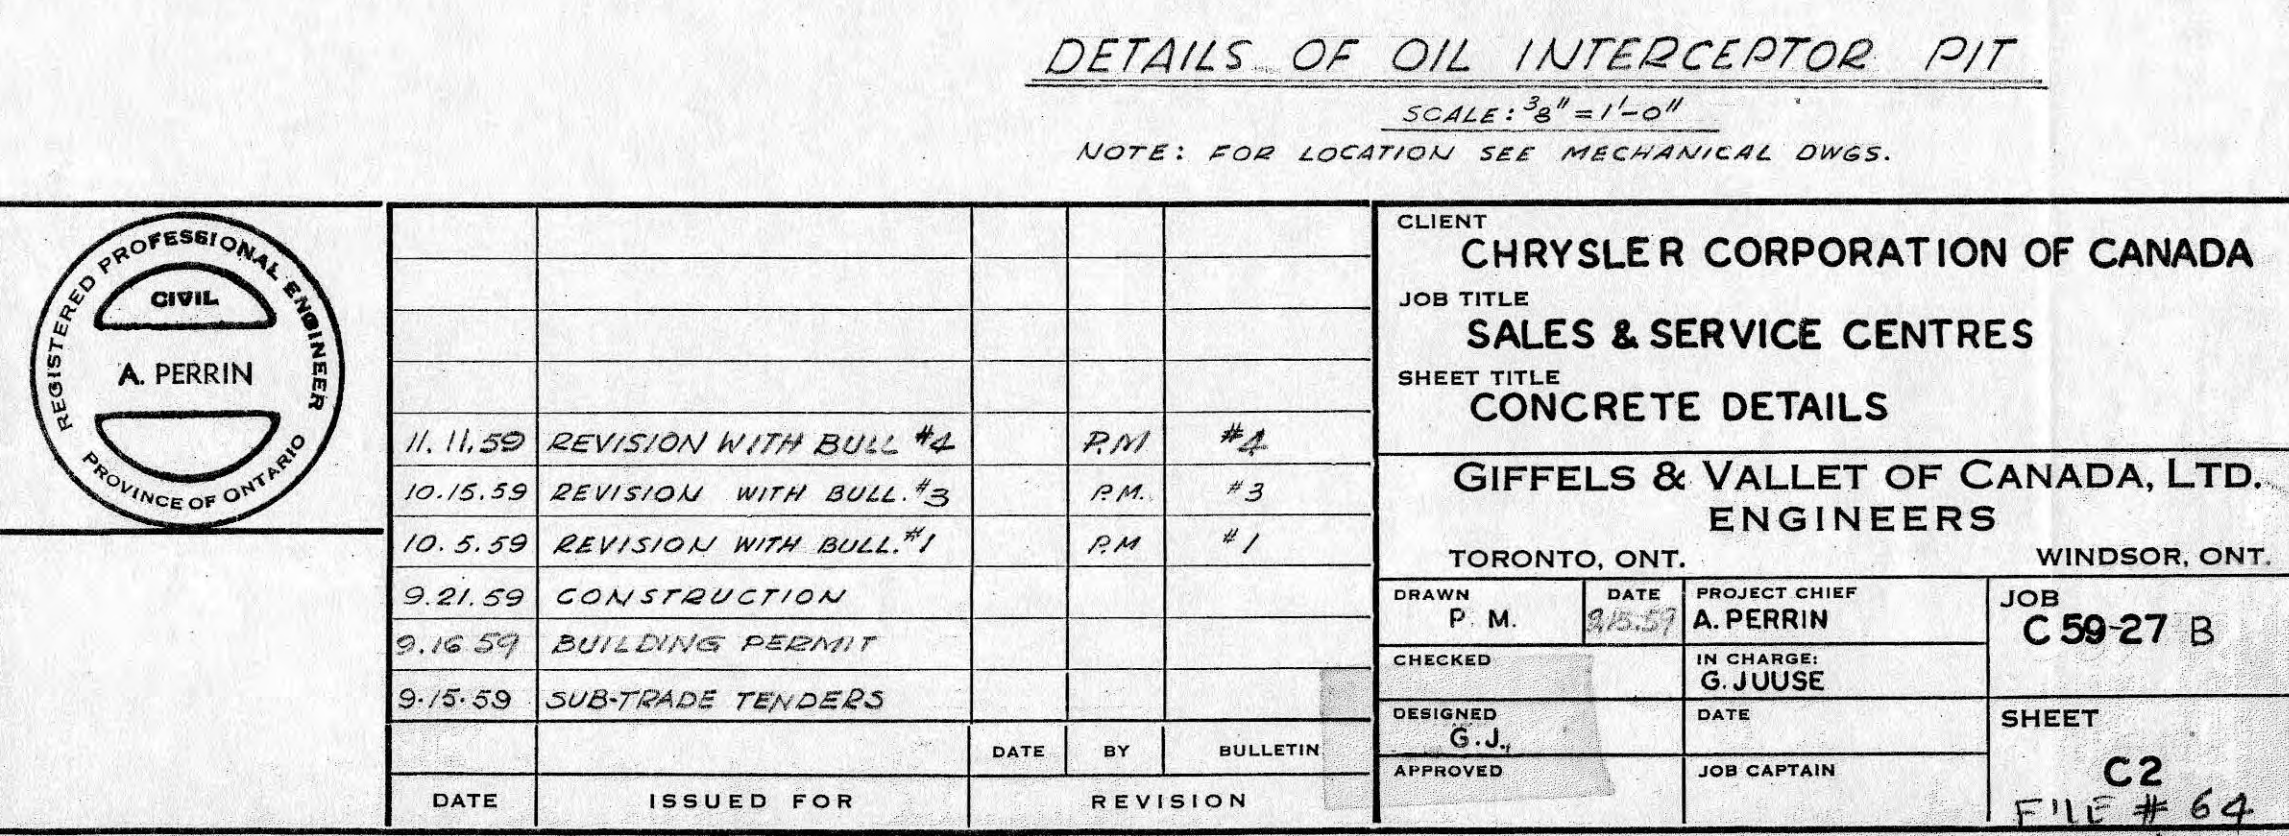 DETAILS OF OIL INTERCEPTOR PIT
SCALE: 3/8" = 1'-0"
NOTE: FOR LOCATION SEE MECHANICAL DWGS.
REGISTERED PROFESSIONAL ENGINEER
CIVIL
A. PERRIN
PROVINCE OF ONTARIO
11.11.59 REVISION WITH BULL #4 P.M #4
10.15.59 REVISION WITH BULL. #3 P.M. #3
10.5.59 REVISION WITH BULL. #1 P.M #1
9.21.59 CONSTRUCTION
9.16 59 BUILDING PERMIT
9.15.59 SUB-TRADE TENDERS
DATE BY BULLETIN
DATE ISSUED FOR REVISION
CLIENT
CHRYSLER CORPORATION OF CANADA
JOB TITLE
SALES & SERVICE CENTRES
SHEET TITLE
CONCRETE DETAILS
GIFFELS & VALLET OF CANADA, LTD.
ENGINEERS
TORONTO, ONT. WINDSOR, ONT.
DRAWN
P. M.
DATE
9.15.59
PROJECT CHIEF
A. PERRIN
JOB
C 59-27 B
CHECKED
IN CHARGE:
G. JUUSE
DESIGNED
G.J.
DATE
SHEET
C2
APPROVED
JOB CAPTAIN
FILE # 64